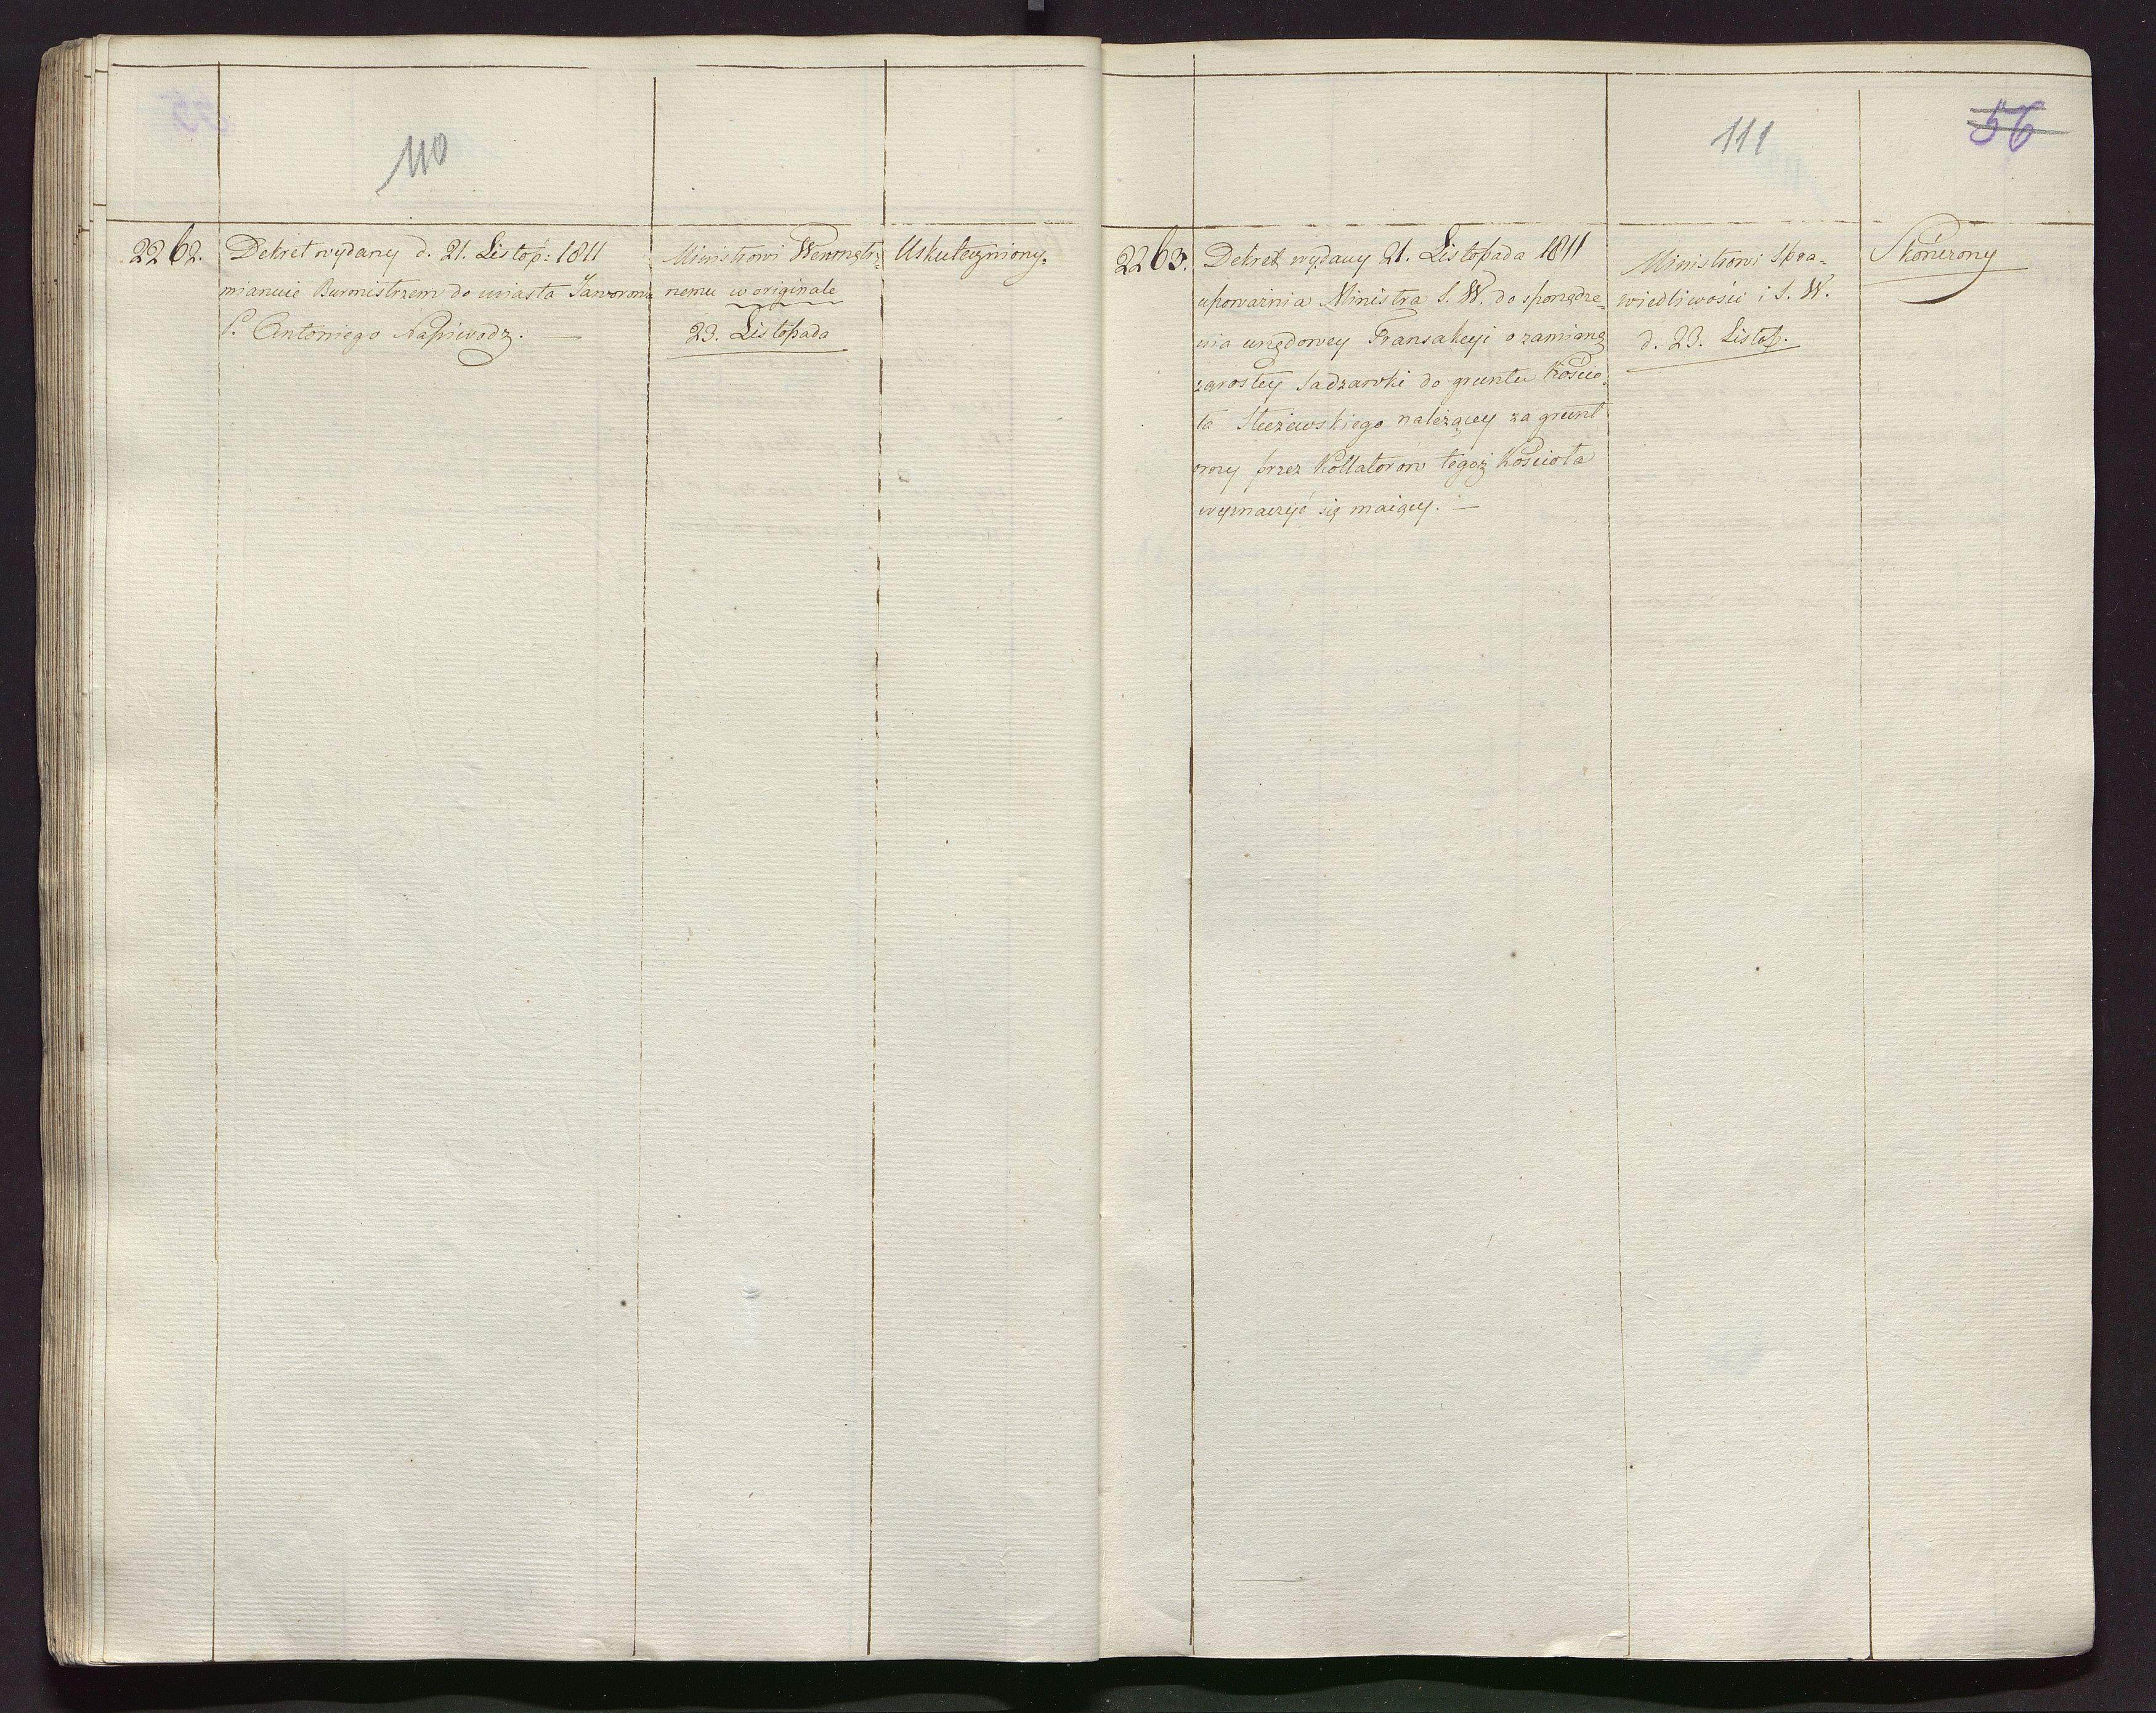 110
2262.
Dekret wydany d. 21. Listop: 1811
mianuie Burmistrzem do miasta Jaworowa
P. Antoniego Napiwodz. —
Ministrowi Wewnętrz-
nemu w originale
23. Listopada
Uskuteczniony.
111
56
2263.
Dekret wydany 21. Listopada 1811
upoważnia Ministra S. W. do sporządze-
nia urzędowey Transakcyi o zamianę
zarostey Sadzawki do gruntu Kościo-
ła należącey za grunt
orny przez Kollatorow tegoż Kościoła
wyznaczyć się maiący. —
Ministrowi Spra-
wiedliwości i S. W.
d. 23. Listop.
Skończony